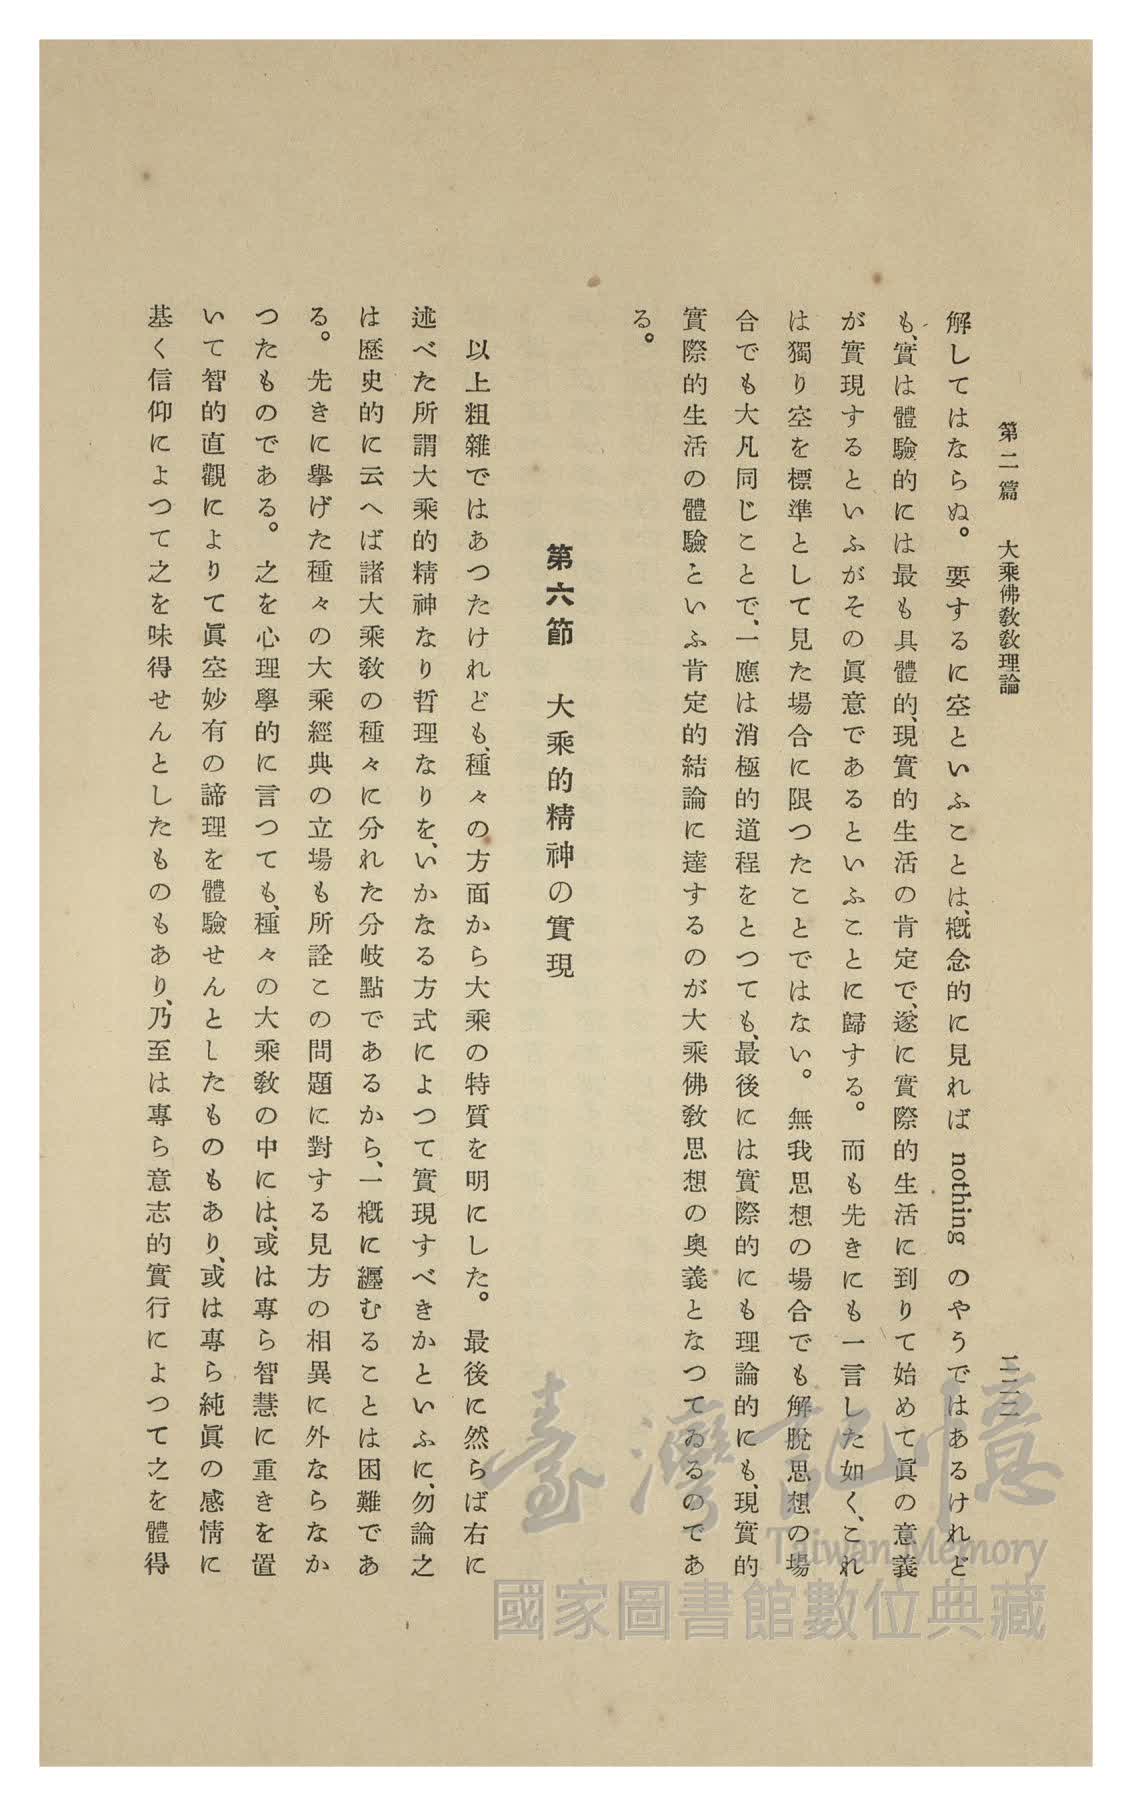 第二篇 大乘佛敎敎理論 一三二
解してはならぬ。要するに空といふことは、槪念的に見れば nothing のやうではあるけれど
も、實は體驗的には最も具體的、現實的生活の肯定で、遂に實際的生活に到りて始めて眞の意義
が實現するといふがその眞意であるといふことに歸する。而も先きにも一言した如く、これ
は獨り空を標準として見た場合に限つたことではない。無我思想の場合でも解脫思想の場
合でも大凡同じことで、一應は消極的道程をとつても、最後には實際的にも理論的にも、現實的
實際的生活の體驗といふ肯定的結論に達するのが大乘佛敎思想の奥義となつてゐるのであ
る。
第六節 大乘的精神の實現
以上粗雜ではあつたけれども、種々の方面から大乘の特質を明にした。最後に然らば右に
述べた所謂大乘的精神なり哲理なりを、いかなる方式によつて實現すべきかといふに、勿論之
は歷史的に云へば諸大乘敎の種々に分れた分岐點であるから、一槪に纒むることは困難であ
る。先きに擧げた種々の大乘經典の立場も所詮この問題に對する見方の相異に外ならなか
つたものである。之を心理學的に言つても、種々の大乘敎の中には、或は專ら智慧に重きを置
いて智的直觀によりて眞空妙有の諦理を體驗せんとしたものもあり、或は專ら純眞の感情に
基く信仰によつて之を味得せんとしたものもあり、乃至は專ら意志的實行によつて之を體得
臺灣記憶
Taiwan Memory
國家圖書館數位典藏